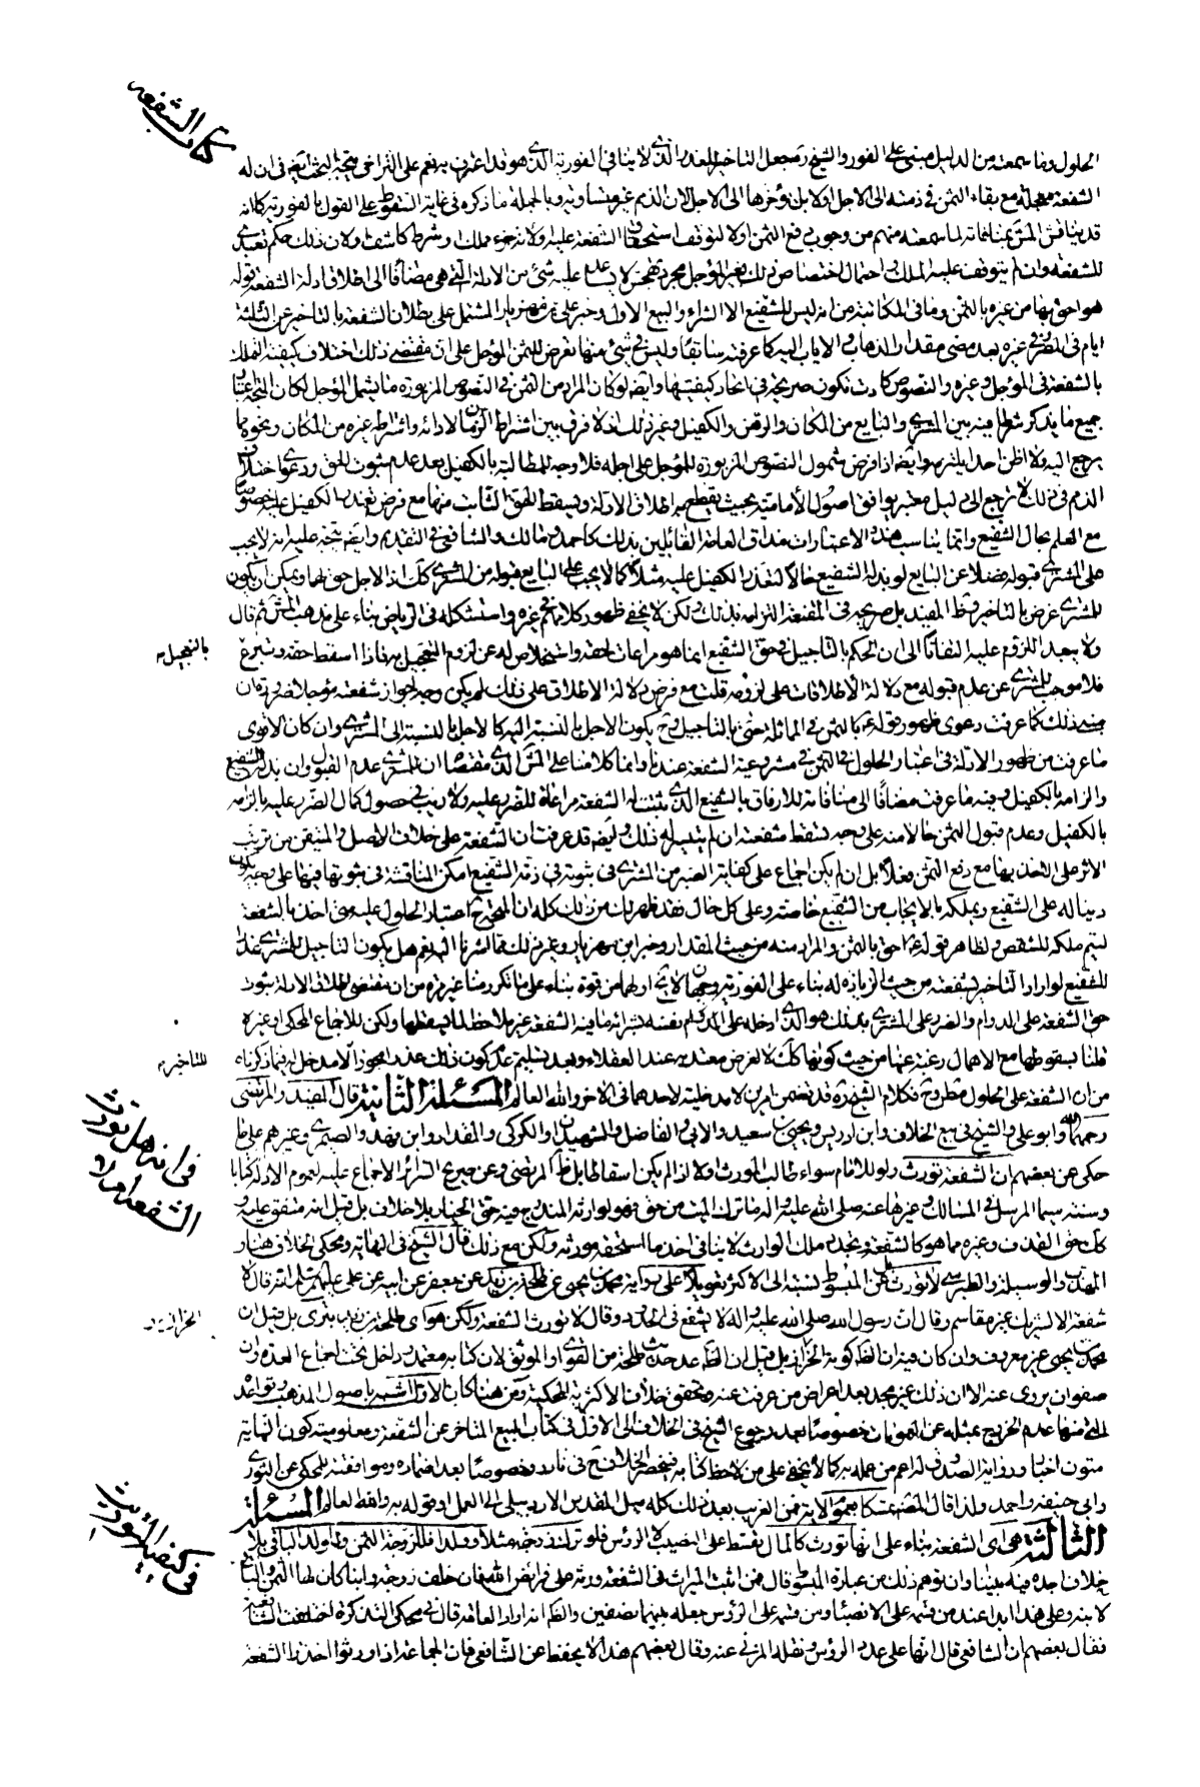 كتاب الشفعة
الحلول وما سمعته من الدليل مبنى على الفور والشيخ ره جعل التاخير للعذر الذى لا ينافى الفورية الذى هو قد اعترف به نعم على التراخى يتجه البحث ايضا فى ان له
الشفعة معجلة مع بقاء الثمن فى ذمته الى الاجل اولا بل يؤخرها الى الاجل لان الذمم غير متساوية وبالجملة ما ذكره فى غاية السقوط على القول بالفورية كانه
للشفعة وان لم يتوقف عليه الملك واحتمال اختصاص ذلك بغير المؤجل مجرد تهجس لا يساعد عليه شئ من الادلة التى هى مضافا الى اطلاق ادلة الشفعة قوله
هو احق بها من غيره بالثمن وما فى المكاتبة من انه ليس للشفيع الا الشراء والبيع الاول وخبر على بن مهزيار المشتمل على بطلان الشفعة بالتاخير عن الثلثة
ايام فى المصر وفى غيره بعد مضى مقدار الذهاب والاياب اليه كما عرفته سابقا وليس فى شئ منها تعرض للثمن المؤجل على ان مقتضى ذلك اختلاف كيفية الملك
بالشفعة فى المؤجل وغيره والنصوص كادت تكون صريحة فى اتحاد كيفيتها وايضا لو كان المراد من الثمن فى النصوص المزبورة ما يشمل المؤجل لكان المتجه اعتبار
جميع ما يذكر شرطا فيه بين المشترى والبايع من المكان والرهن والكفيل وغير ذلك اذ لا فرق بين اشتراط الزمان لادائه واشتراط غيره من المكان ونحوه مما
يرجع اليه ولا اظن احدا يلتزمه وايضا اذا فرض شمول النصوص المزبورة للمؤجل على اجله فلا وجه للمطالبة بالكفيل بعد عدم ثبوت الحق ودعوى اختلاف
الذمم فى ذلك لا ترجع الى دليل معتبر يوافق اصول الامامية بحيث يقطع به اطلاق الادلة ويسقط الحق الثابت منها مع فرض تعذر الكفيل عليه خصوصا
مع العلم بحال الشفيع وانما يناسب هذه الاعتبارات مذاق العامة القائلين بذلك كاحمد ومالك والشافعى فى القديم وايضا يتجه عليه انه لا يجب
على المشترى قبوله فضلا عن البايع لو بذله الشفيع حالا لتعذر الكفيل عليه مثلا كما لا يجب على البايع قبوله من المشترى كذلك اذ الاجل حق لهما ويمكن ان يكون
للمشترى غرض بالتاخير وظاهر المفيد بل صريحه فى المقنعة التزامه بذلك ولكن لا يخفى ظهور كلامهم فى غيره واستشكله فى الرياض بناء على مذهب المتن ثم قال
ولا يبعد اللزوم عليه التفاتا الى ان الحكم بالتاجيل فى حق الشفيع انما هو مراعاة لحقه واستخلاص له عن لزوم التعجيل به فاذا اسقط حقه وتبرع
بالتعجيل
فلا موجب للمشترى عن عدم قبوله مع دلالة الاطلاقات على لزومه قلت مع فرض دلالة الاطلاق على ذلك لم يكن وجه لجواز شفعته مؤجلا
منه ذلك كما عرفت دعوى ظهور قوله ع بالثمن فى المماثلة حتى بالتاجيل وح يكون الاجل بالنسبة اليه كالاجل بالنسبة الى المشترى وان كان الاقوى
ما عرفت من ظهور الادلة فى اعتبار الحلول فى الثمن فى مشروعية الشفعة عندنا وانما كلامنا على المتن الذى مقتضاه ان للمشترى عدم القبول وان بذله الشفيع
والزامه بالكفيل وفيه ما عرفت مضافا الى منافاته للارفاق بالشفيع الذى يثبت له الشفعة مراعاة للضرر عليه ولا ريب فى حصول كمال الضرر عليه بالزامه
بالكفيل وعدم قبول الثمن حالا منه على وجه تسقط شفعته ان لم يتيسر له ذلك وايضا قد عرفت ان الشفعة على خلاف الاصل والمتيقن من ترتب
الاثر على الاخذ بها مع دفع الثمن فعلا بل ان لم يكن اجماع على كفاية الصبر من المشترى فى ثبوته فى ذمة الشفيع امكن المناقشة فى ثبوتها فيها على وجه يكون
دينا له على الشفيع ويملكه بالايجاب من الشفيع خاصة وعلى كل حال فقد ظهر لك من ذلك كله ان المتجه اعتبار الحلول عليه متى اخذ بالشفعة
ليتم ملكه للشقص ولظاهر قوله ع احق بالثمن والمراد منه من حيث المقدار وخبر ابن مهزيار وغير ذلك مما اشرنا اليه نعم هل يكون التاجيل للمشترى عذرا
للشفيع لو اراد التاخير بشفعته من حيث الزيادة له بناء على الفورية وجهان لا يخ اولهما من قوة بناء على ما تكرر منا غير مرة من ان مقتضى اطلاق الادلة ثبوت
حق الشفعة على الدوام والضرر على المشترى بذلك هو الذى ادخله على نفسه بشرائه ما فيه الشفعة غير ملاحظ لما يسقطها ولكن للاجماع المحكى او غيره
قلنا بسقوطها مع الاهمال رغبة عنها من حيث كونها كذلك لا لغرض معتد به عند العقلاء وبعد تسليم عدم كون ذلك عذرا مجوزا لا مدخل له فيما ذكرناه
للتاخير
من ان الشفعة على الحلول مط وح فكلام الشهرة قد تضمن امرين لا مدخلية لاحدهما فى الاخر والله العالم المسئلة الثانية قال المفيد والمرتضى
فى انه هل تورث الشفعة ام لا
رحمهما الله وابو على والشيخ فى بيع الخلاف وابن ادريس ويحيى بن سعيد والآبى والفاضل والشهيدان والكركى والمقداد وابن فهد والصيمرى وغيرهم على ما
حكى عن بعضهم ان الشفعة تورث ولو للامام سواء طالب المورث اولا اذا لم يكن اسقاطا بل ظاهر المرتضى وعن صريح السرائر الاجماع عليه لعموم الادلة كتابا
وسنة سيما المرسل فى المسالك وغيرها عنه صلى الله عليه واله ما ترك الميت من حق فهو لوارثه المندرج فيه حق الخيار بلا خلاف بل قيل انه متفق عليه و
كك حق القذف وغيره مما هو كالشفعة وتجدد ملك الوارث لا ينافى اخذ ما استحقه مورثه ولكن مع ذلك قال الشيخ فى النهاية ومحكى الخلاف هنا و
المهذب والوسيلة والطبرسى لا تورث بل عن المبسوط نسبته الى الاكثر تعويلا على رواية محمد بن يحيى عن طلحة بن زيد عن جعفر عن ابيه عن على عليهم السلام انه قال لا
شفعة الا لشريك غير مقاسم وقال ان رسول الله صلى الله عليه واله لا يشفع فى الحدود وقال لا تورث الشفعة ولكن هو كما ترى طلحة بن زيد بترى بل قيل ان
الخزاز
محمد بن يحيى غير معروف وان كان فيه ان الظاهر كونه الخزاز بل قيل ان الظاهر عد حديث طلحة من القوى او الموثق لان كتابه معتمد وداخل تحت اجماع العدة وان
صفوان يروى عنه الا ان ذلك غير مجد بعد اعراض من عرفت عنه وتحقق خلاف الاكثرية المحكية ومن هنا كان الاول اشبه باصول المذهب وقواعده
التى منها عدم الخروج بمثله عن العمومات خصوصا بعد رجوع الشيخ فى الخلاف الى الاول فى كتاب البيع المتاخر عن الشفعة ومعلومية كون النهاية
متون اخبار ورواية الصدوق له اعم من عمله به كما لا يخفى على من لاحظ كتابه فينحصر الخلاف ح فى نادر وخصوصا بعد اضماره وموافقته للمحكى عن الثورى
وابى حنيفة واحمد ولذا قال المصنف تمسكا بعموم الاية فمن الغريب بعد ذلك كله ميل المقدس الاردبيلى الى العمل او قوله به والله العالم المسئلة
فى كيفية التوريث
الثالثة هى اى الشفعة بناء على انها تورث كالمال تقسط على النصيب لا الرؤس فلو ترك زوجة مثلا وولدا فللزوجة الثمن وللولد الباقى بلا
خلاف اجده فيه بيننا وان توهم ذلك من عبارة المبسوط قال فمن اثبت الميراث فى الشفعة ورثه على فرائض الله فان خلف زوجة وابنا كان لها الثمن والباقى
لابنه وعلى هذا ابدا عند من قسمه على الانصباء ومن قسمه على الرؤس جعله بينهما نصفين والظاهر انه اراد العامة قال فى محكى التذكرة اختلفت الشافعية
فقال بعضهم ان الشافعى قال انها على عدد الرؤس ونقله المزنى عنه وقال بعضهم هذا لا يحفظ عن الشافعى فان الجماعة اذا ورثوا اخذوا الشفعة